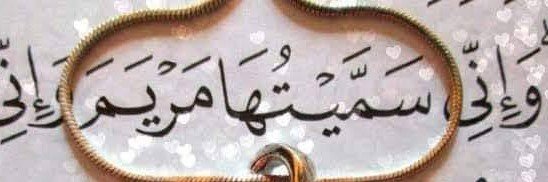 وَإِنِّي سَمَّيْتُهَا مَرْيَمَ وَإِنِّي